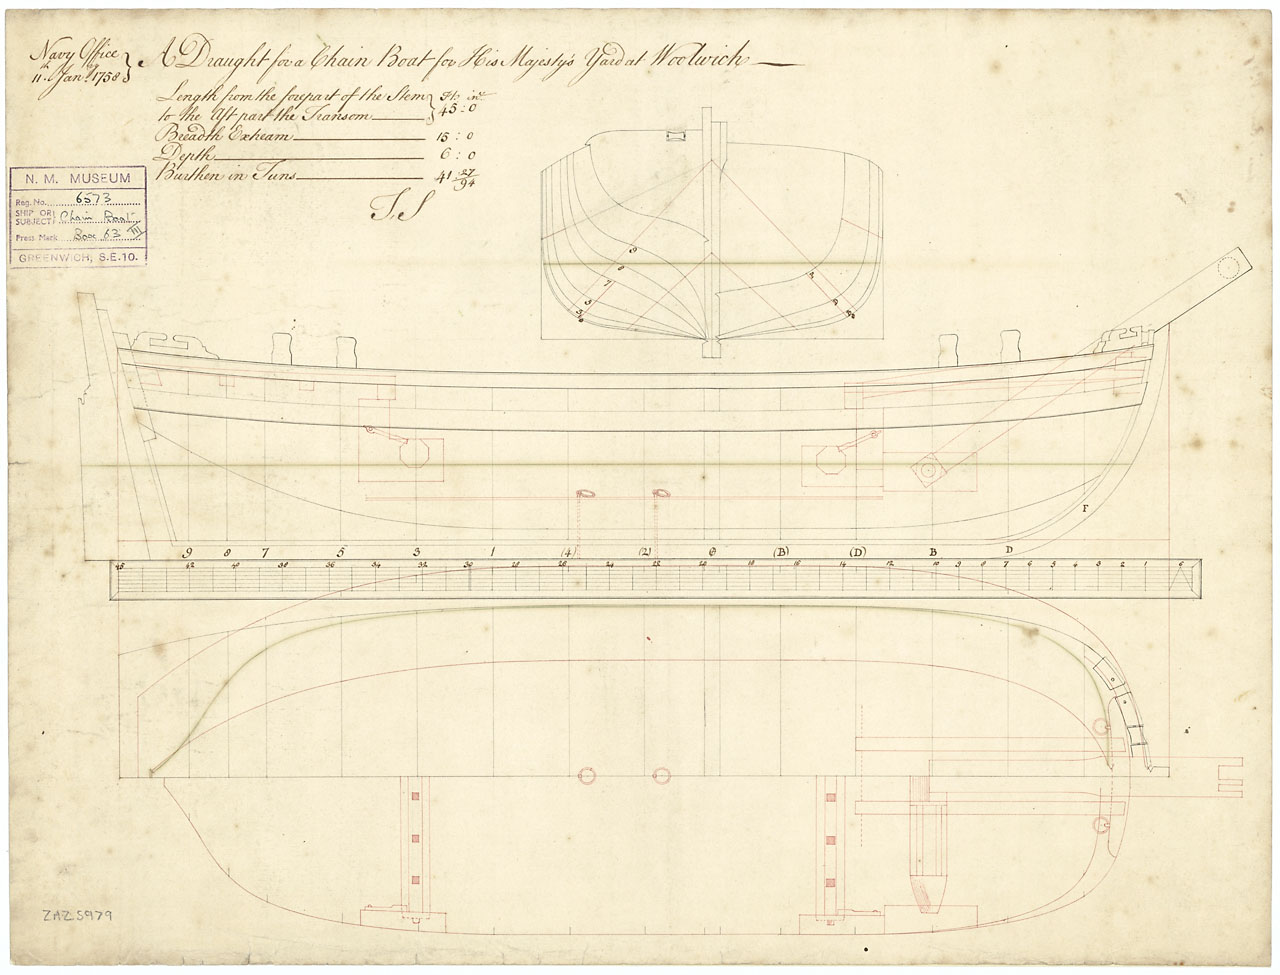 Navy Office
11th Jany. 1758
A Draught for a Chain Boat for His Majesty's Yard at Woolwich
Length from the forepart of the Stem
to the Aft part the Transom
Ft. ins.
45 : 0
Breadth Extream 15 : 0
Depth 6 : 0
Burthen in Tuns 41 27/94
T.S
N. M. MUSEUM
Reg. No. 6573
SHIP OR SUBJECT Chain Boat
Press Mark Box 63 III
GREENWICH, S.E.10.
9
8
7
5
F
9 8 7 5 3 1 (4) (2) (B) (D) B D
42 40 38 36 34 32 30 28 26 24 22 20 18 16 14 12 10 9 8 7 6 5 4 3 2 1 6
ZAZ 5979